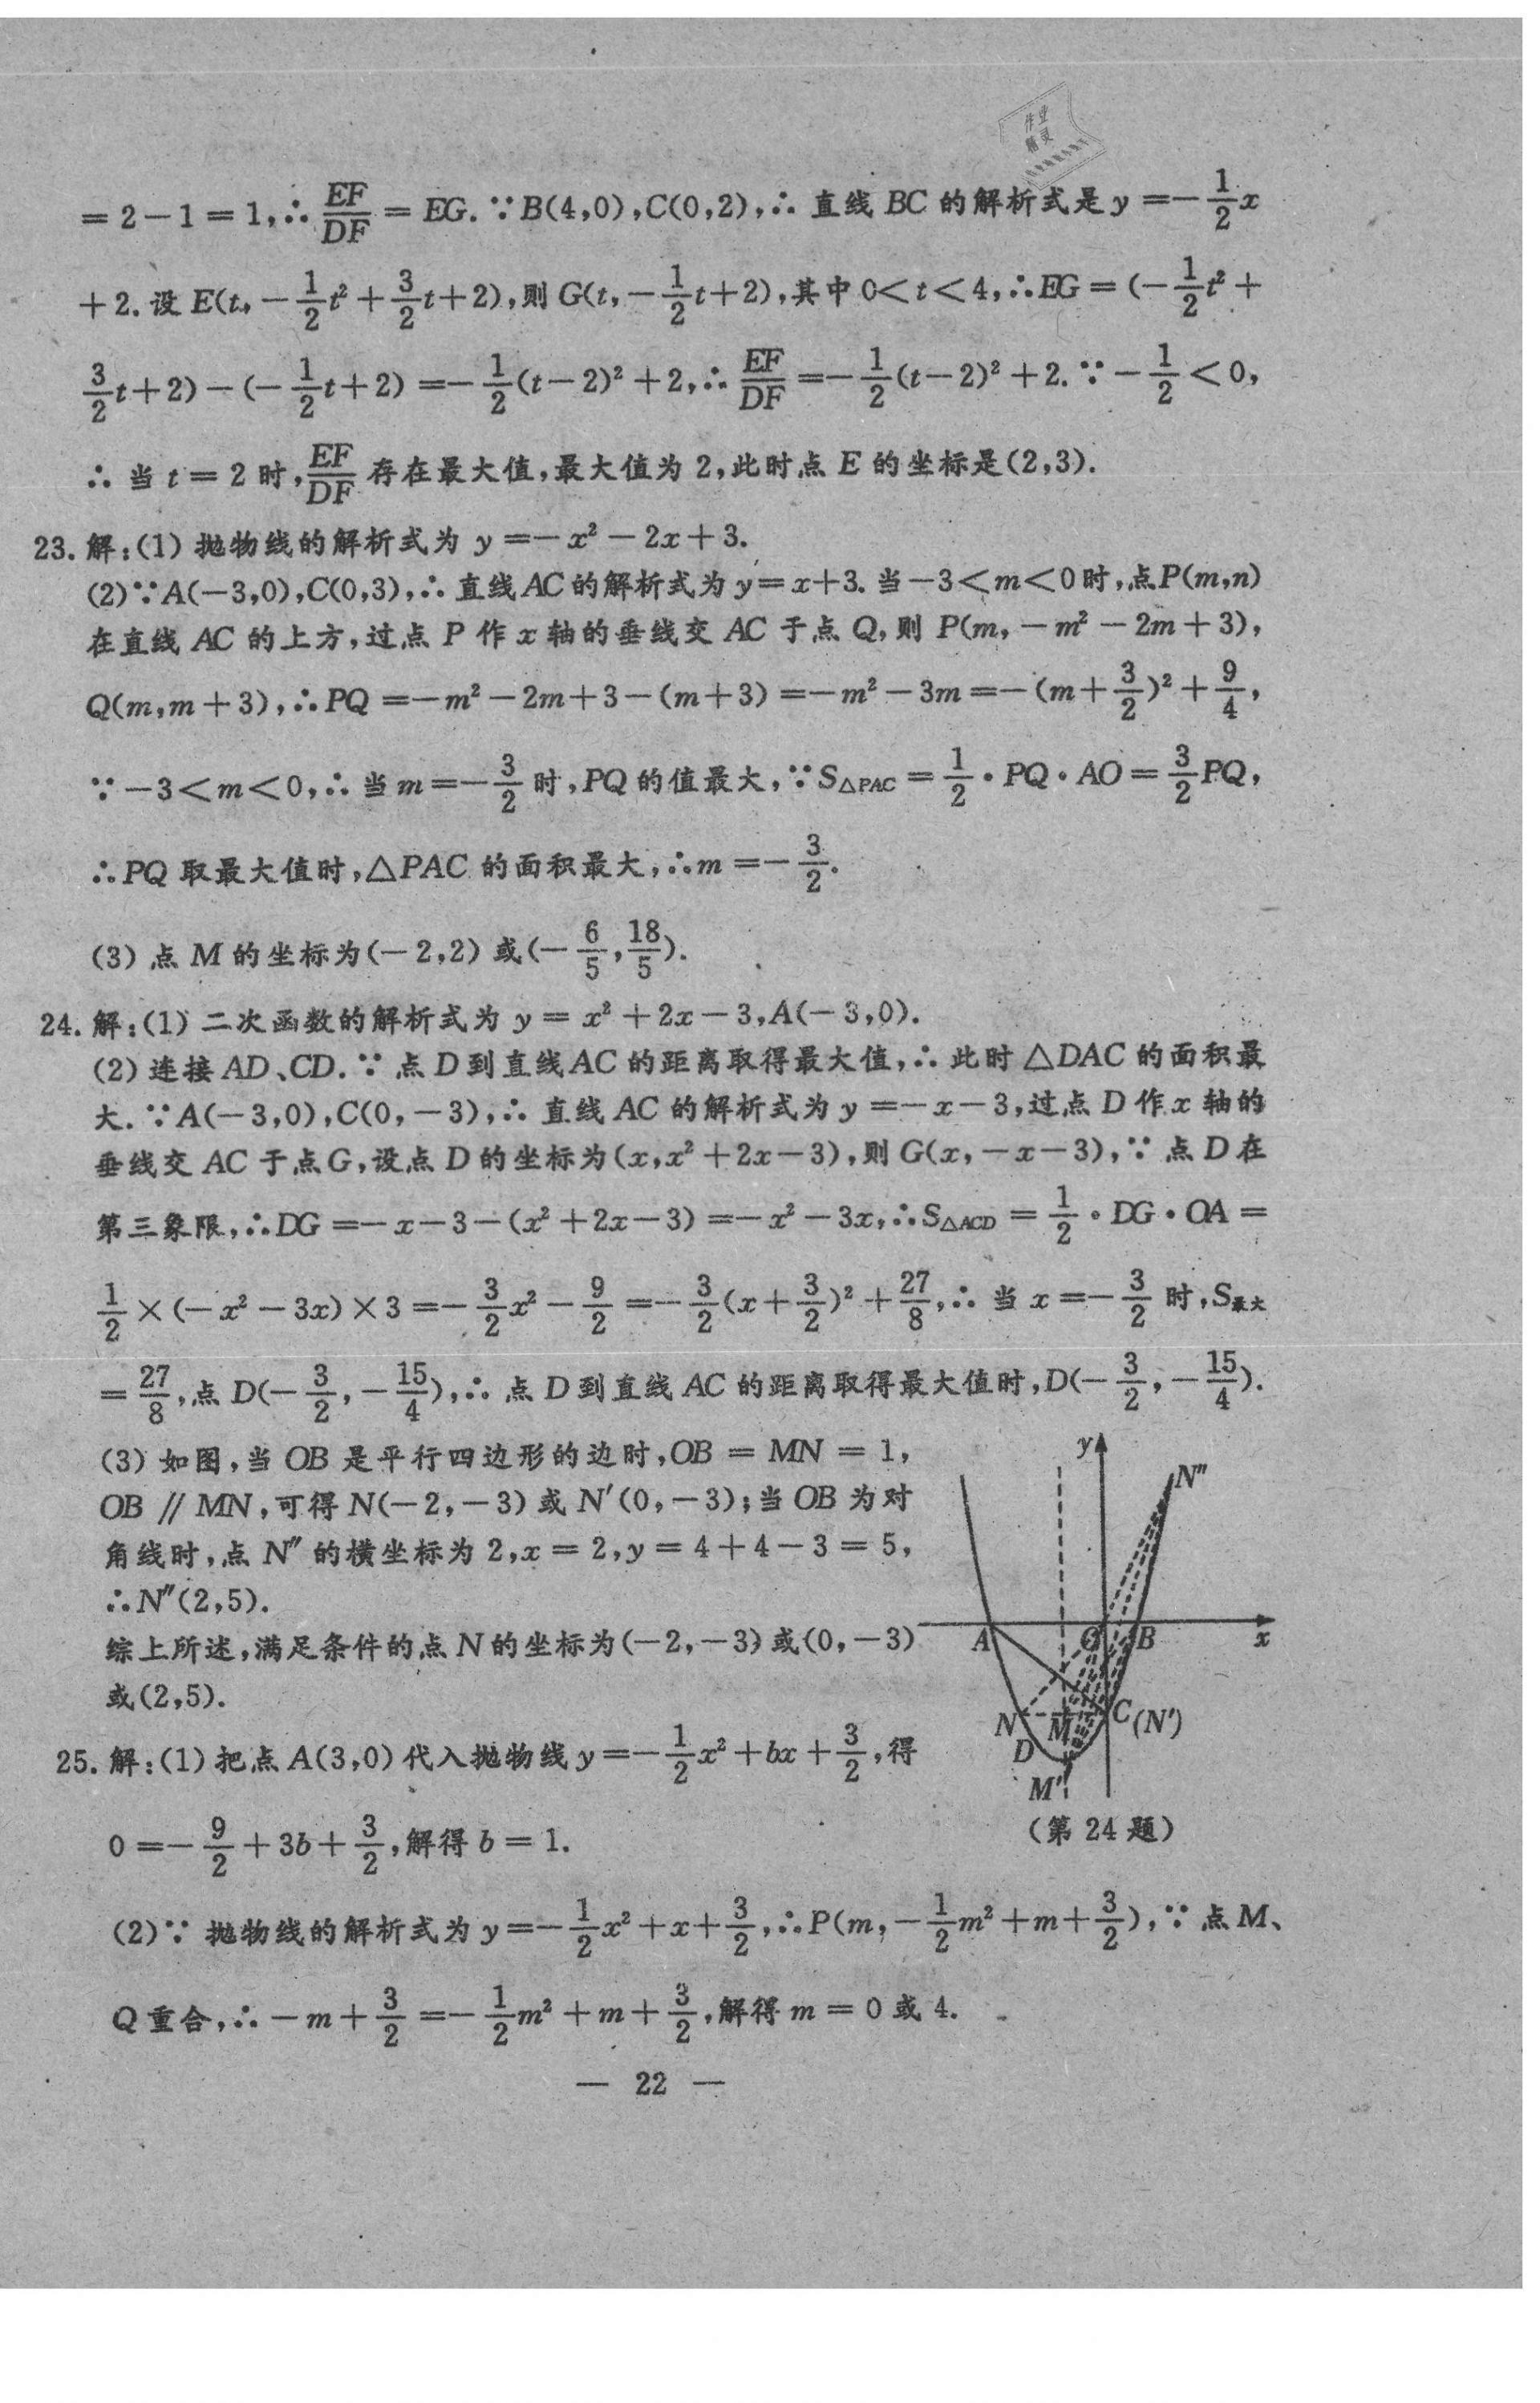 作业
精灵
= 2-1 = 1,∴ EF/DF = EG. ∵B(4,0),C(0,2),∴ 直线 BC 的解析式是 y =-1/2x
+2. 设 E(t,-1/2t²+3/2t+2),则 G(t,-1/2t+2),其中 0<t<4,∴EG = (-1/2t²+
3/2t+2)-(-1/2t+2) =-1/2(t-2)²+2,∴ EF/DF =-1/2(t-2)²+2. ∵-1/2<0,
∴ 当 t = 2 时,EF/DF 存在最大值,最大值为 2,此时点 E 的坐标是(2,3).
23. 解:(1) 抛物线的解析式为 y =-x²-2x+3.
(2)∵A(-3,0),C(0,3),∴ 直线 AC 的解析式为 y=x+3. 当-3<m<0时,点P(m,n)
在直线 AC 的上方,过点 P 作 x 轴的垂线交 AC 于点 Q,则 P(m,-m²-2m+3),
Q(m,m+3),∴PQ =-m²-2m+3-(m+3) =-m²-3m =-(m+3/2)²+9/4,
∵-3<m<0,∴ 当 m =-3/2 时,PQ 的值最大,∵S△PAC = 1/2·PQ·AO = 3/2PQ,
∴PQ 取最大值时,△PAC 的面积最大,∴m =-3/2.
(3) 点 M 的坐标为(-2,2) 或(-6/5,18/5).
24. 解:(1) 二次函数的解析式为 y = x²+2x-3,A(-3,0).
(2) 连接 AD、CD. ∵ 点 D 到直线 AC 的距离取得最大值,∴ 此时 △DAC 的面积最
大. ∵A(-3,0),C(0,-3),∴ 直线 AC 的解析式为 y =-x-3,过点 D 作 x 轴的
垂线交 AC 于点 G,设点 D 的坐标为(x,x²+2x-3),则 G(x,-x-3),∵ 点 D 在
第三象限,∴DG =-x-3-(x²+2x-3) =-x²-3x,∴S△ACD = 1/2·DG·OA =
1/2×(-x²-3x)×3 =-3/2x²-9/2 =-3/2(x+3/2)²+27/8,∴ 当 x =-3/2 时,S最大
= 27/8,点 D(-3/2,-15/4),∴ 点 D 到直线 AC 的距离取得最大值时,D(-3/2,-15/4).
(3) 如图,当 OB 是平行四边形的边时,OB = MN = 1,
OB // MN,可得 N(-2,-3) 或 N′(0,-3);当 OB 为对
角线时,点 N″ 的横坐标为 2,x = 2,y = 4+4-3 = 5,
∴N″(2,5).
综上所述,满足条件的点 N 的坐标为(-2,-3) 或(0,-3)
或(2,5).
y
N″
A
O
B
x
N
M
C(N′)
D
M′
(第 24 题)
25. 解:(1) 把点 A(3,0) 代入抛物线 y =-1/2x²+bx+3/2,得
0 =-9/2+3b+3/2,解得 b = 1.
(2)∵ 抛物线的解析式为 y =-1/2x²+x+3/2,∴P(m,-1/2m²+m+3/2),∵ 点 M、
Q 重合,∴-m+3/2 =-1/2m²+m+3/2,解得 m = 0 或 4.
— 22 —